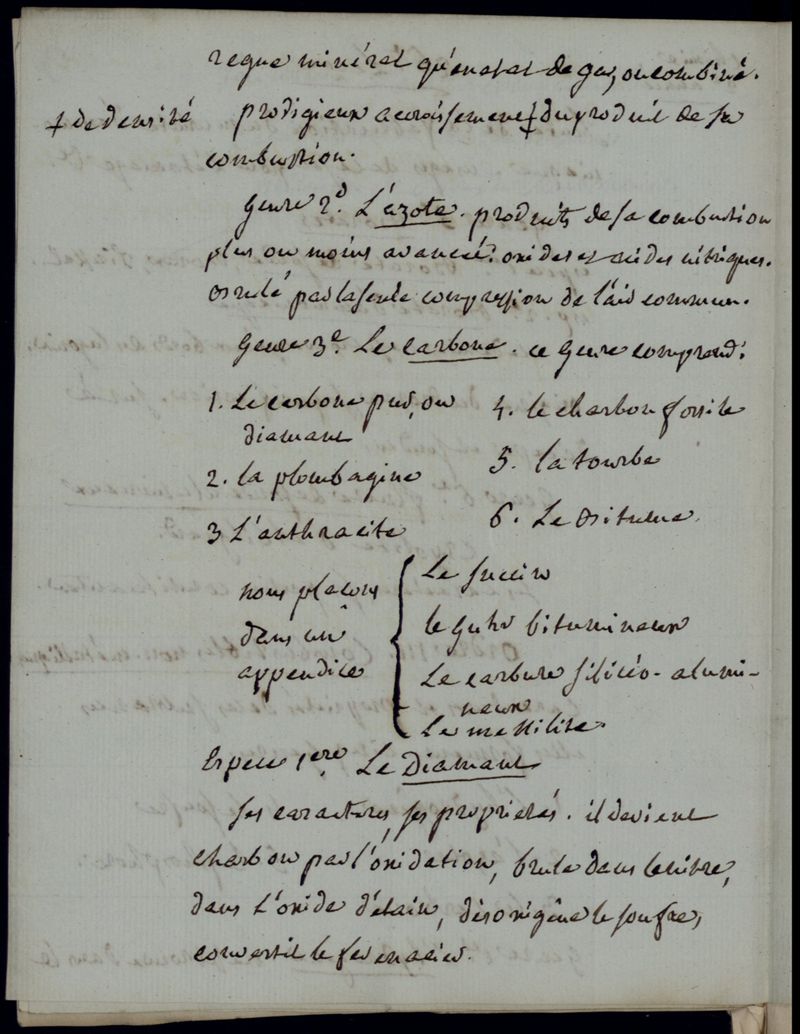 regne minéral qu'en etat de gaz, ou combiné.
‡ de densité
prodigieux accroissement ‡ du produit de sa
combustion.
Genre 2d. L'azote. produits de sa combustion
plus ou moins avancée: oxides et acides nitriques.
brulé par la seule compression de l'air commun.
Genre 3e. Le carbone. ce Genre comprend:
1. Le carbone pur, ou
diamant
2. la plombagine
3 L'anthracite
4. le charbon fossile
5. la tourbe
6. Le Bitume.
nous placons
dans un
appendice
Le succin
le Guhr bitumineux
Le carbure siliceo-alumi-
neux
Le mellilite.
Espece 1ere. Le Diamant
ses caracteres, ses proprietés. il devient
charbon par l'oxidation, brule dans le nitre,
dans l'oxide d'étain, désoxigêne le soufre,
convertit le fer en acier.